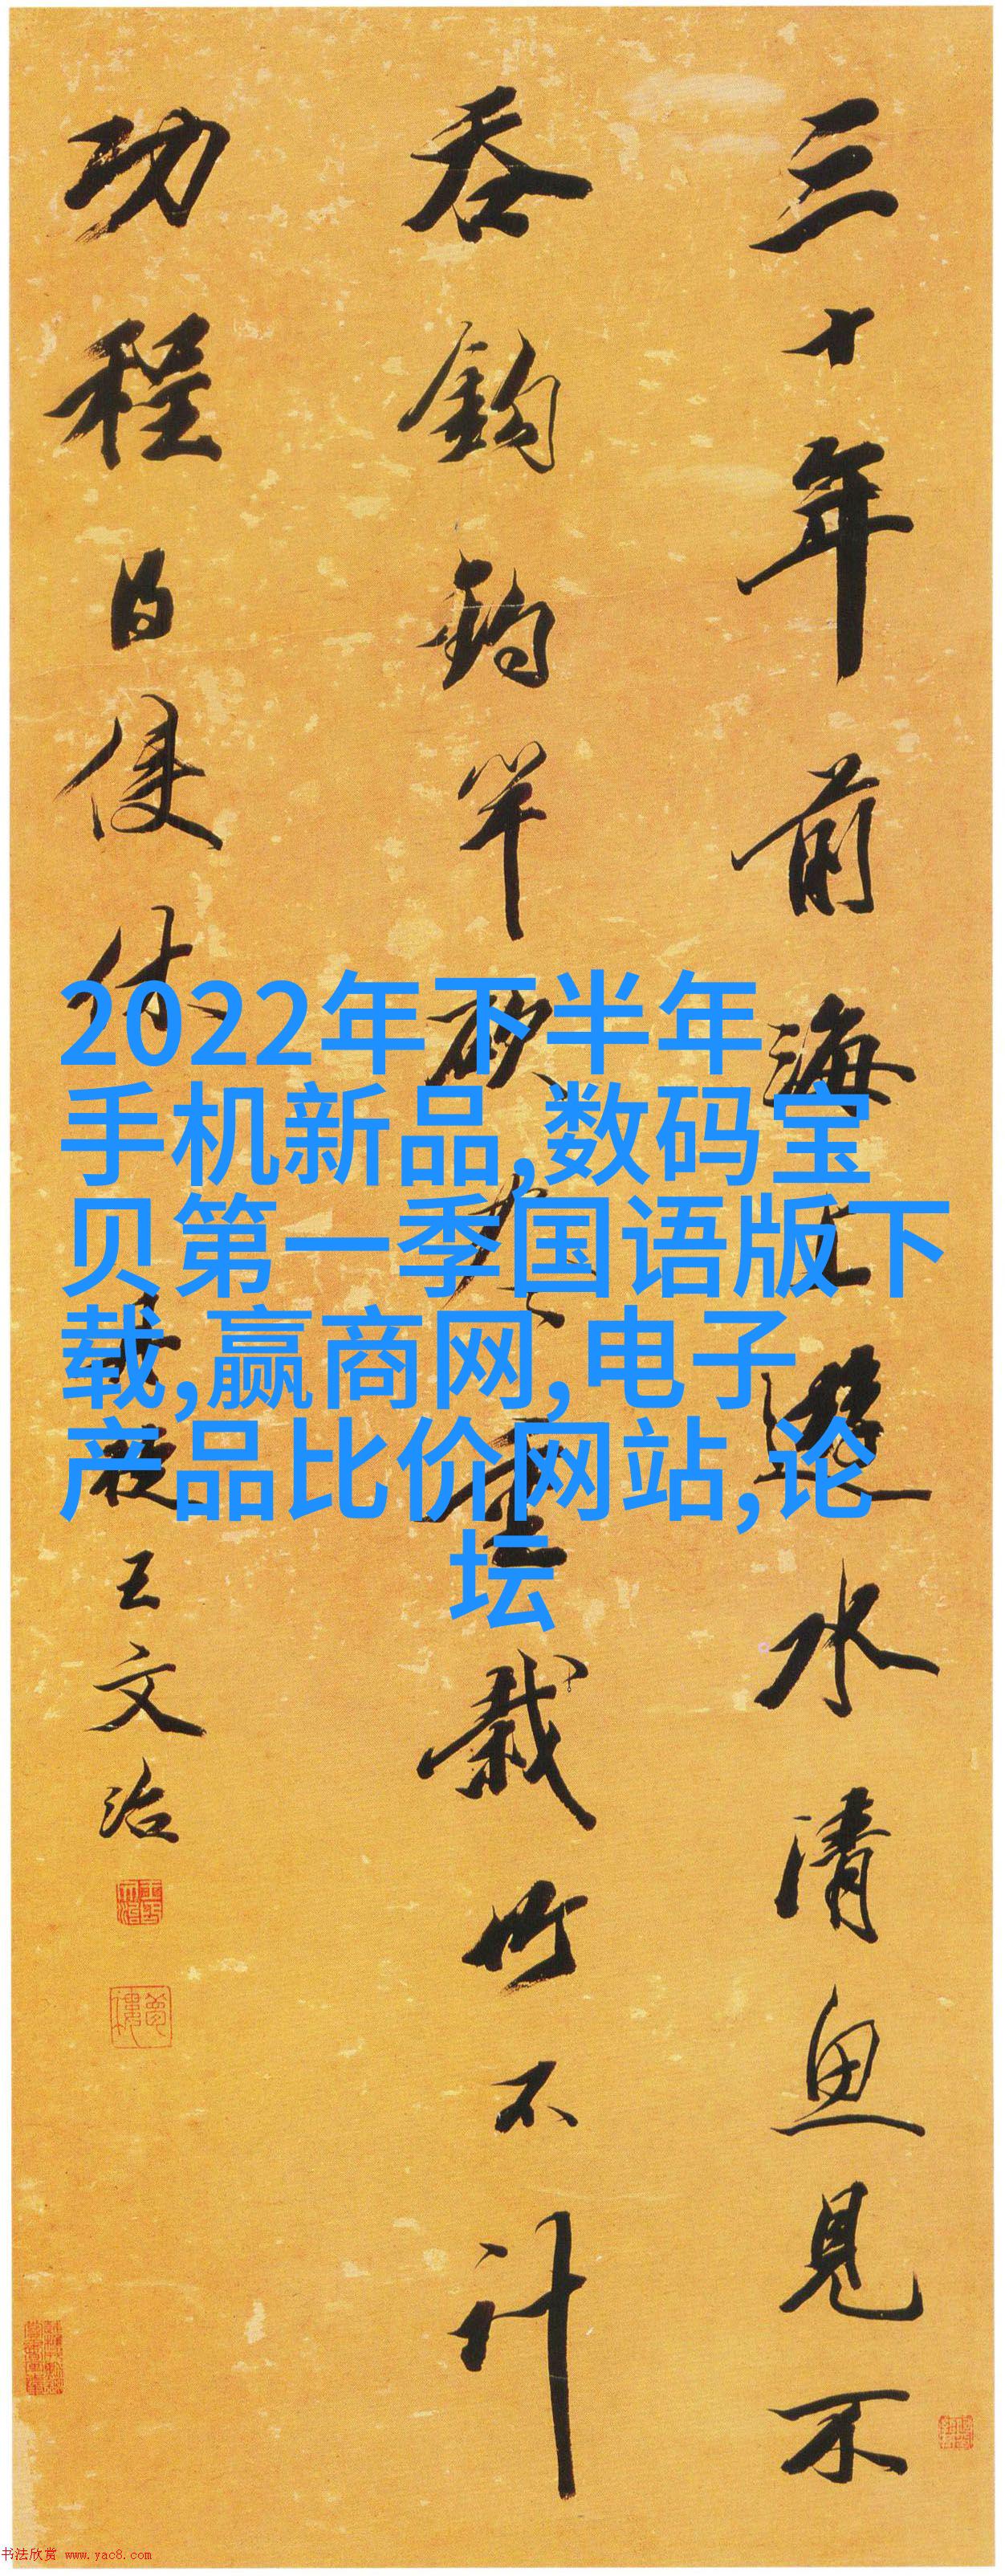 三十年前海上遊水清魚見不
吞鉤釣竿斫盡重栽竹不計
功程得便休
王文治
2022年下半年
手机新品,数码宝
贝第一季国语版下
载,赢商网,电子
产品比价网站,论
坛
书法欣赏 www.yac8.com